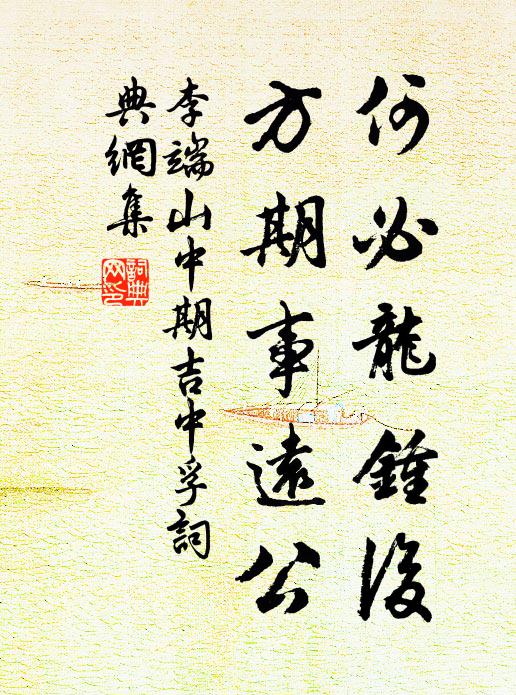 何必龍鍾後
方期事遠公
李端山中期吉中孚詞
典網集
詞典
网印